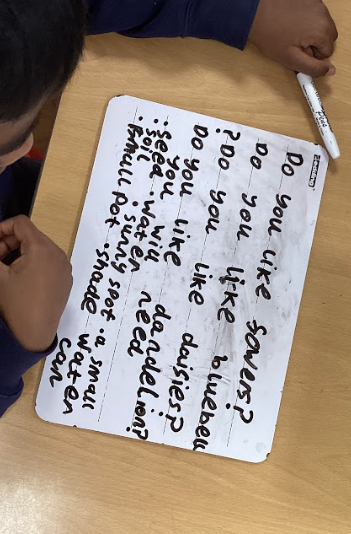 Do you like sowers?
Do you like bluebell
? Do you like daisies?
Do you like dandelion?
you will need
:seed . water
:soil . sunny spot . a small
small pot . shade water
can